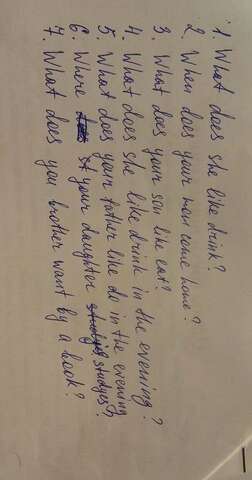 1. What does she like drink?
2. When does your mom come home?
3. What does your son like eat?
4. What does she like drink in the evening?
5. What does your father like do in the evening
6. Where your daughter studyes?
7. What does you brother want by a book?